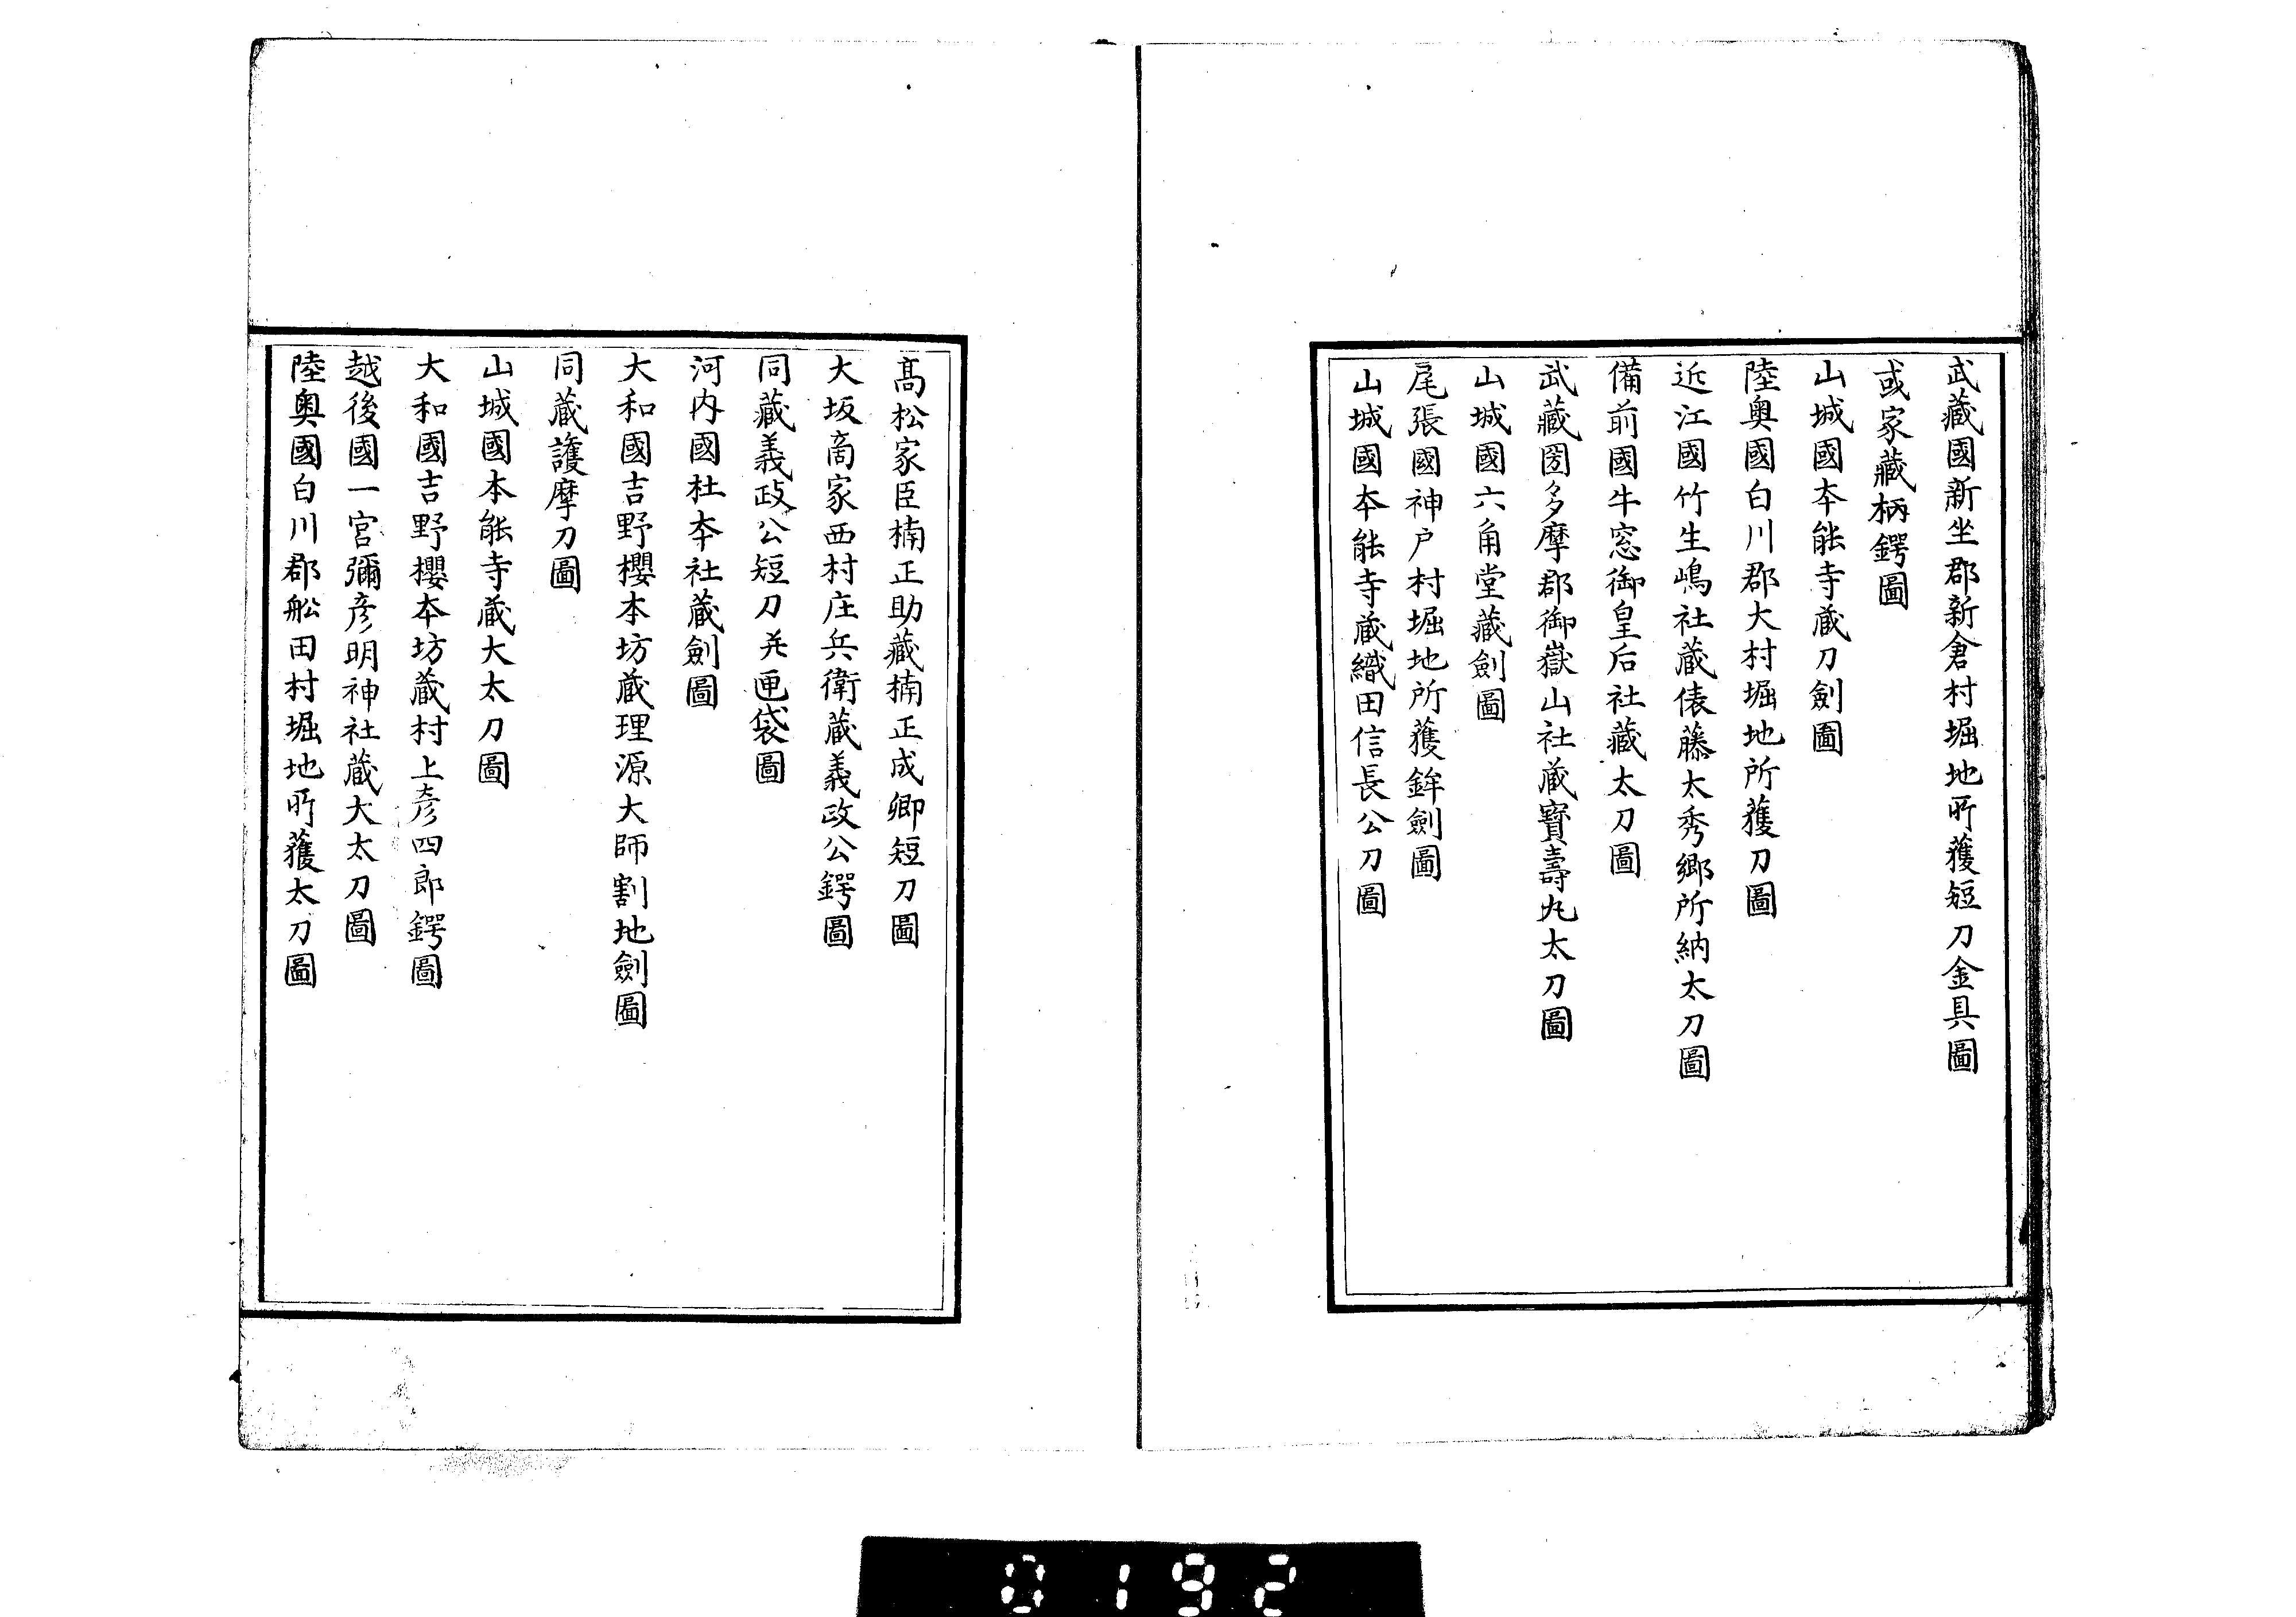 武藏國新坐郡新倉村堀地所獲短刀金具圖
或家藏柄鍔圖
山城國本能寺藏刀劍圖
陸奥國白川郡大村堀地所獲刀圖
近江國竹生嶋社藏俵藤太秀郷所納太刀圖
備前國牛窓御皇后社藏太刀圖
武藏國多摩郡御嶽山社藏寶壽丸太刀圖
山城國六角堂藏劍圖
尾張國神戸村堀地所獲鉾劍圖
山城國本能寺藏織田信長公刀圖
髙松家臣楠正助藏楠正成卿短刀圖
大坂商家西村庄兵衛藏義政公鍔圖
同藏義政公短刀并匣袋圖
河内國杜本社藏劍圖
大和國吉野櫻本坊藏理源大師割地劍圖
同藏護摩刀圖
山城國本能寺藏大太刀圖
大和國吉野櫻本坊藏村上彦四郎鍔圖
越後國一宮彌彦明神社藏大太刀圖
陸奥國白川郡舩田村堀地所獲太刀圖
0192